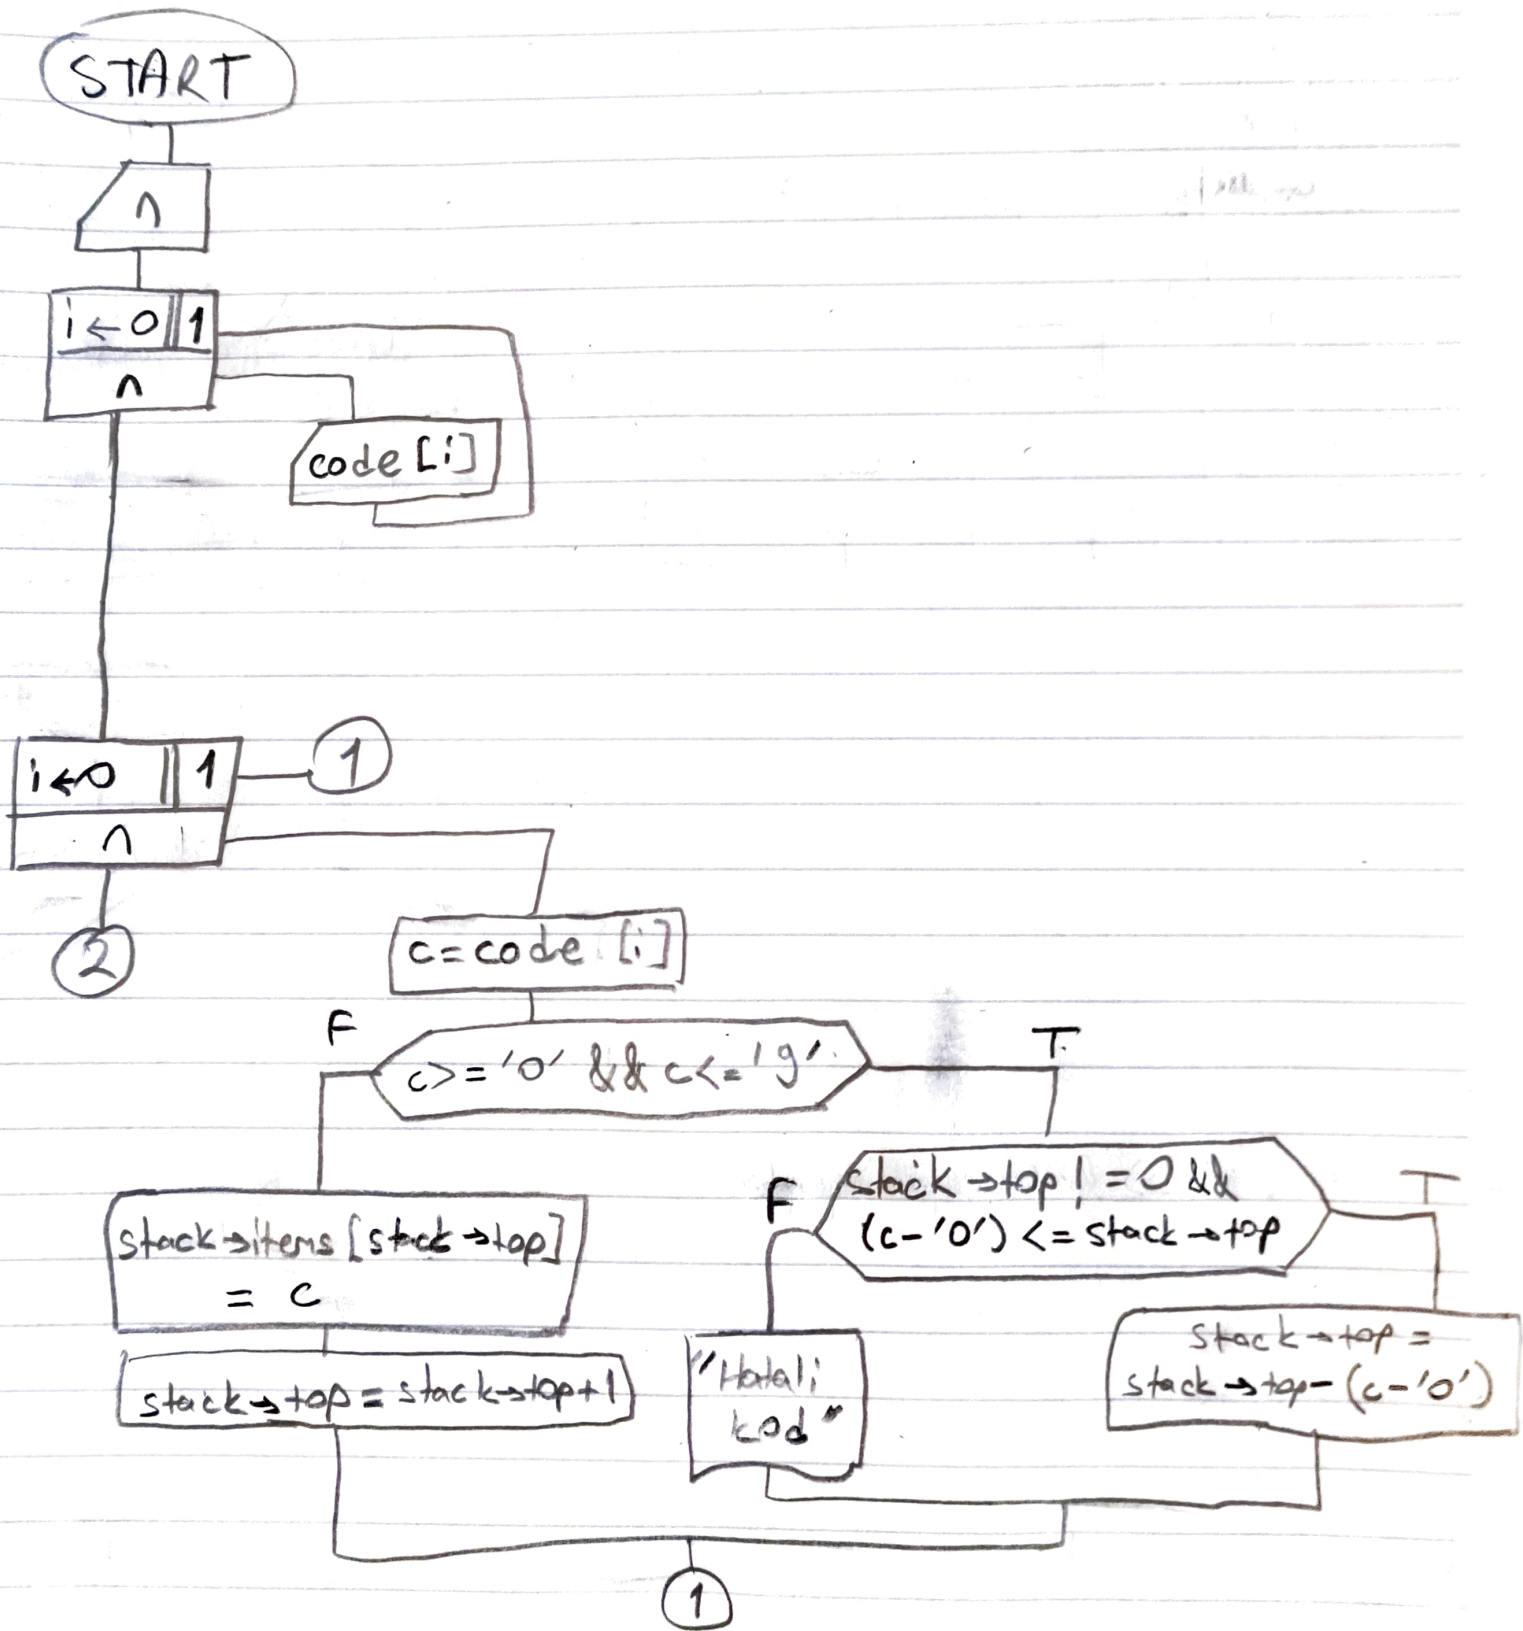 START
n
i ← 0 1
n
code [i]
i ← 0 1
1
n
2
c = code [i]
F
T
c >= '0' && c <= '9'
stack → top != 0 &&
F
T
(c - '0') <= stack → top
stack → items [stack → top]
= c
stack → top = stack → top + 1
"Hatali
kod"
stack → top =
stack → top - (c - '0')
1